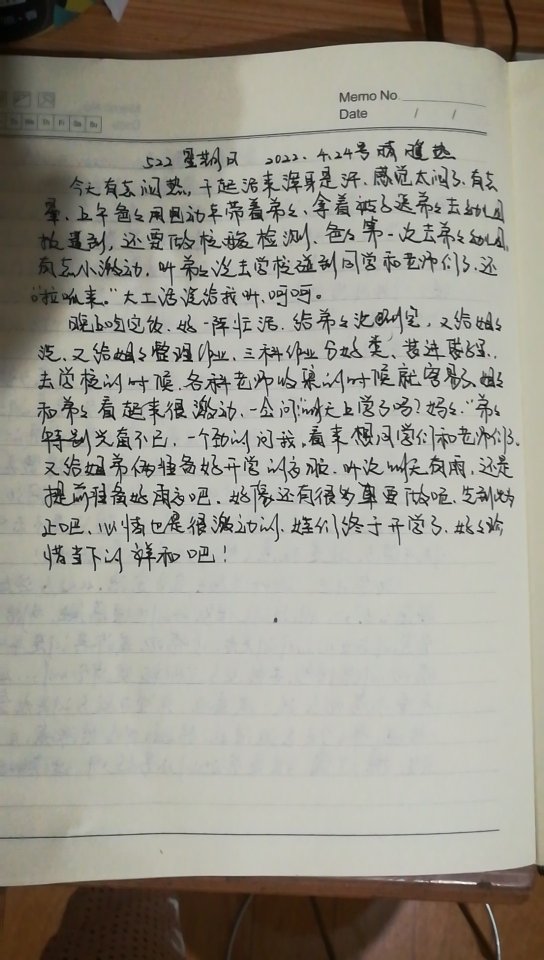 Memo No.
Date / /
Tu We Th Fr Sa Su
522 星期日 2022.4.24号 晴 暖热
今天有点闷热,干起活来浑身是汗,感觉太闷了,有点
晕,上午爸爸用电动车带着弟弟,拿着被子送弟弟去幼儿园
报道到,还要做核酸检测,爸爸第一次去弟弟幼儿园,
有点小激动,听弟弟说去学校碰到同学和老师们了,还
“拉呱来。”大工活没给我听,呵呵。
晚上吃完饭,好一阵忙活,给弟弟洗刷完,又给姐姐
洗,又给姐姐整理作业,三科作业分好类,装进袋里,
去学校的时候,各科老师收集的时候就容易了,姐姐
和弟弟看起来很激动,一会问“明天上学了吗?妈妈。”弟弟
特别兴奋不已,一个劲的问我,看来想同学们和老师们了。
又给姐弟俩准备好开学的衣服,听说明天有雨,还是
提前准备好雨衣吧,好像还有很多事要做啦,先到此为
止吧,心情也是很激动的,娃们终于开学了,好好珍
惜当下的祥和吧!